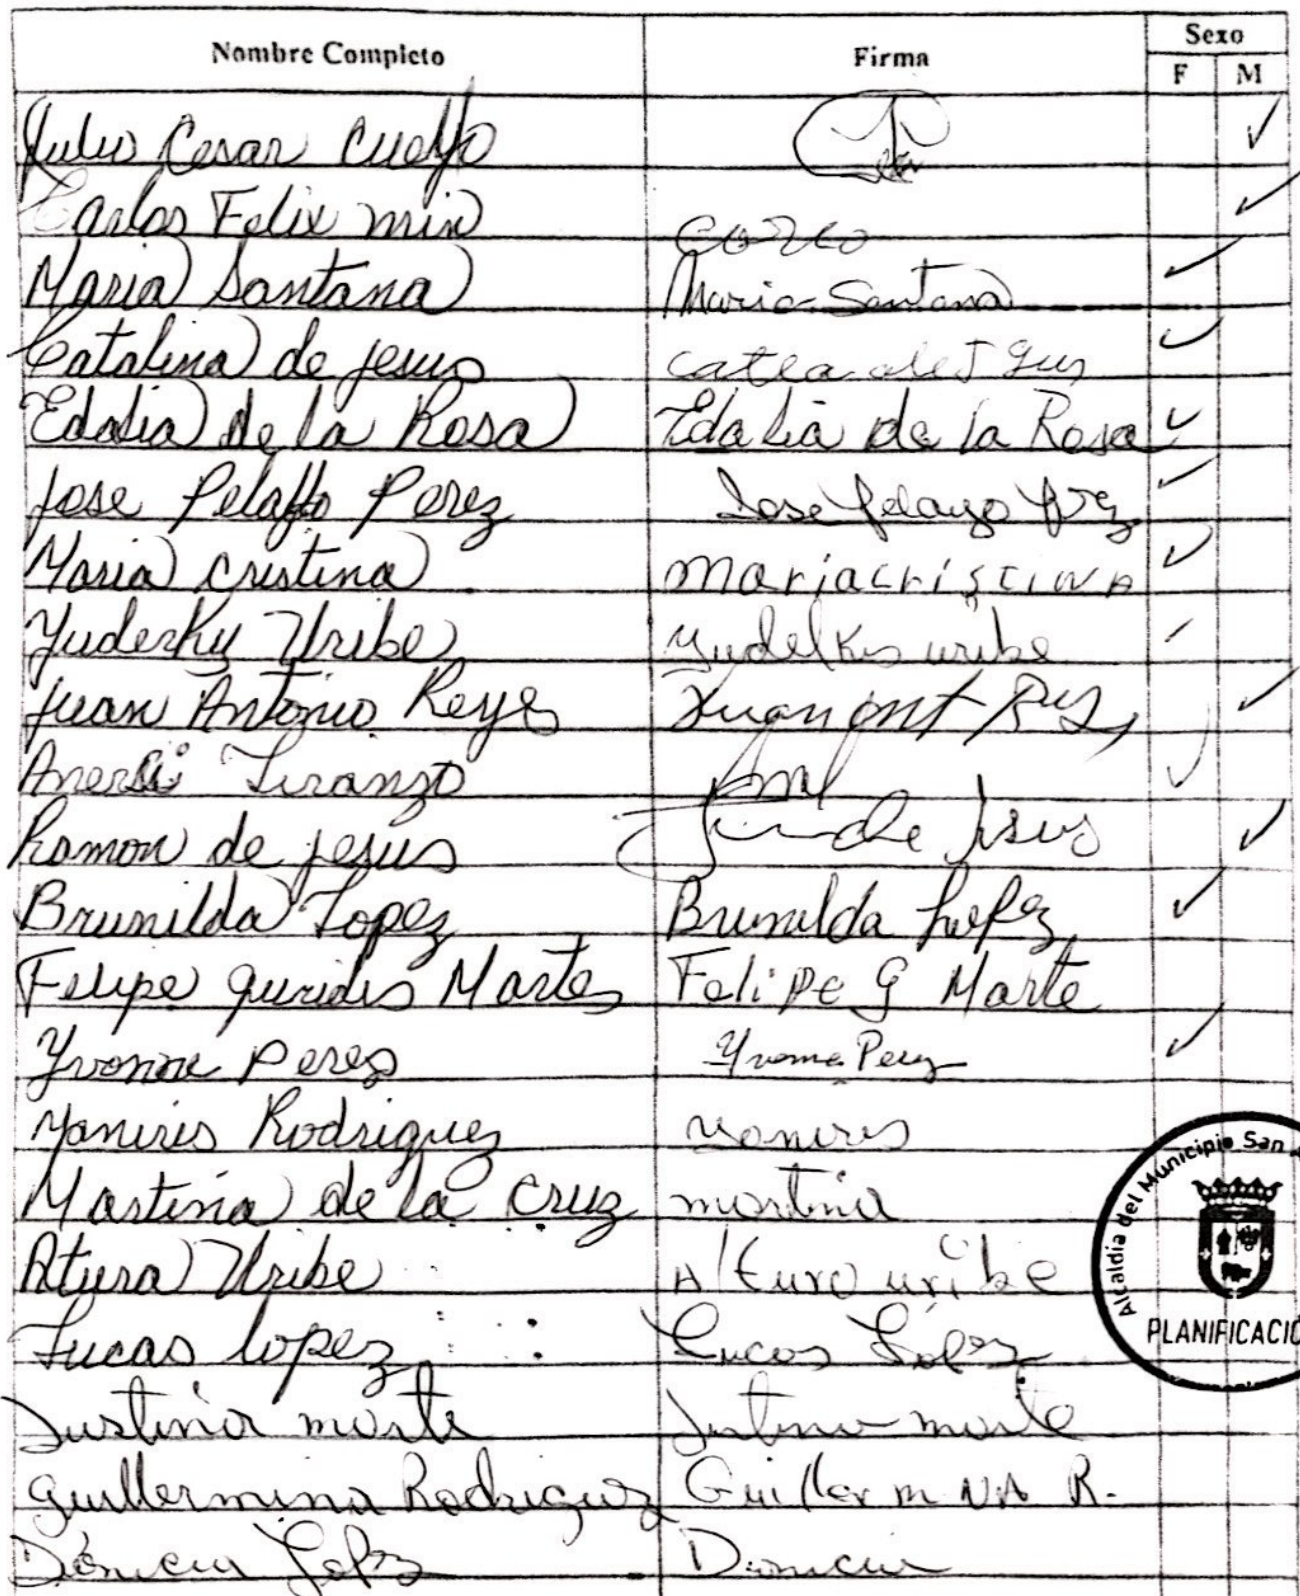 Nombre Completo Firma Sexo
F M
Julio Cesar Cuello ✓
Carlos Felix min ✓
Maria Santana Maria Santana ✓
Catalina de jesus ✓
Edalia de la Rosa Edalia de la Rosa ✓
Jose Pelayo Perez Jose Pelayo ✓
Maria cristina mariacristiNA ✓
Yuderky Uribe yudelkis uribe ✓
Juan Antonio Reyes Juan ant ✓
Tiranzo ✓
Ramon de jesus de Jesus ✓
Brunilda Lopez Brunilda Lopez ✓
Felipe guridis Martes Felipe G Marte
Yvonne Perez Yvonne Perez ✓
Yaniris Rodriguez yaniris
Martina de la cruz martina
Atura Uribe Alturo uribe
Lucas lopez Lucas López
Justina marte Justina marte
guillermina Rodriguez GuillermiNA R.
López
Alcaldía del Municipio San
PLANIFICACIÓ